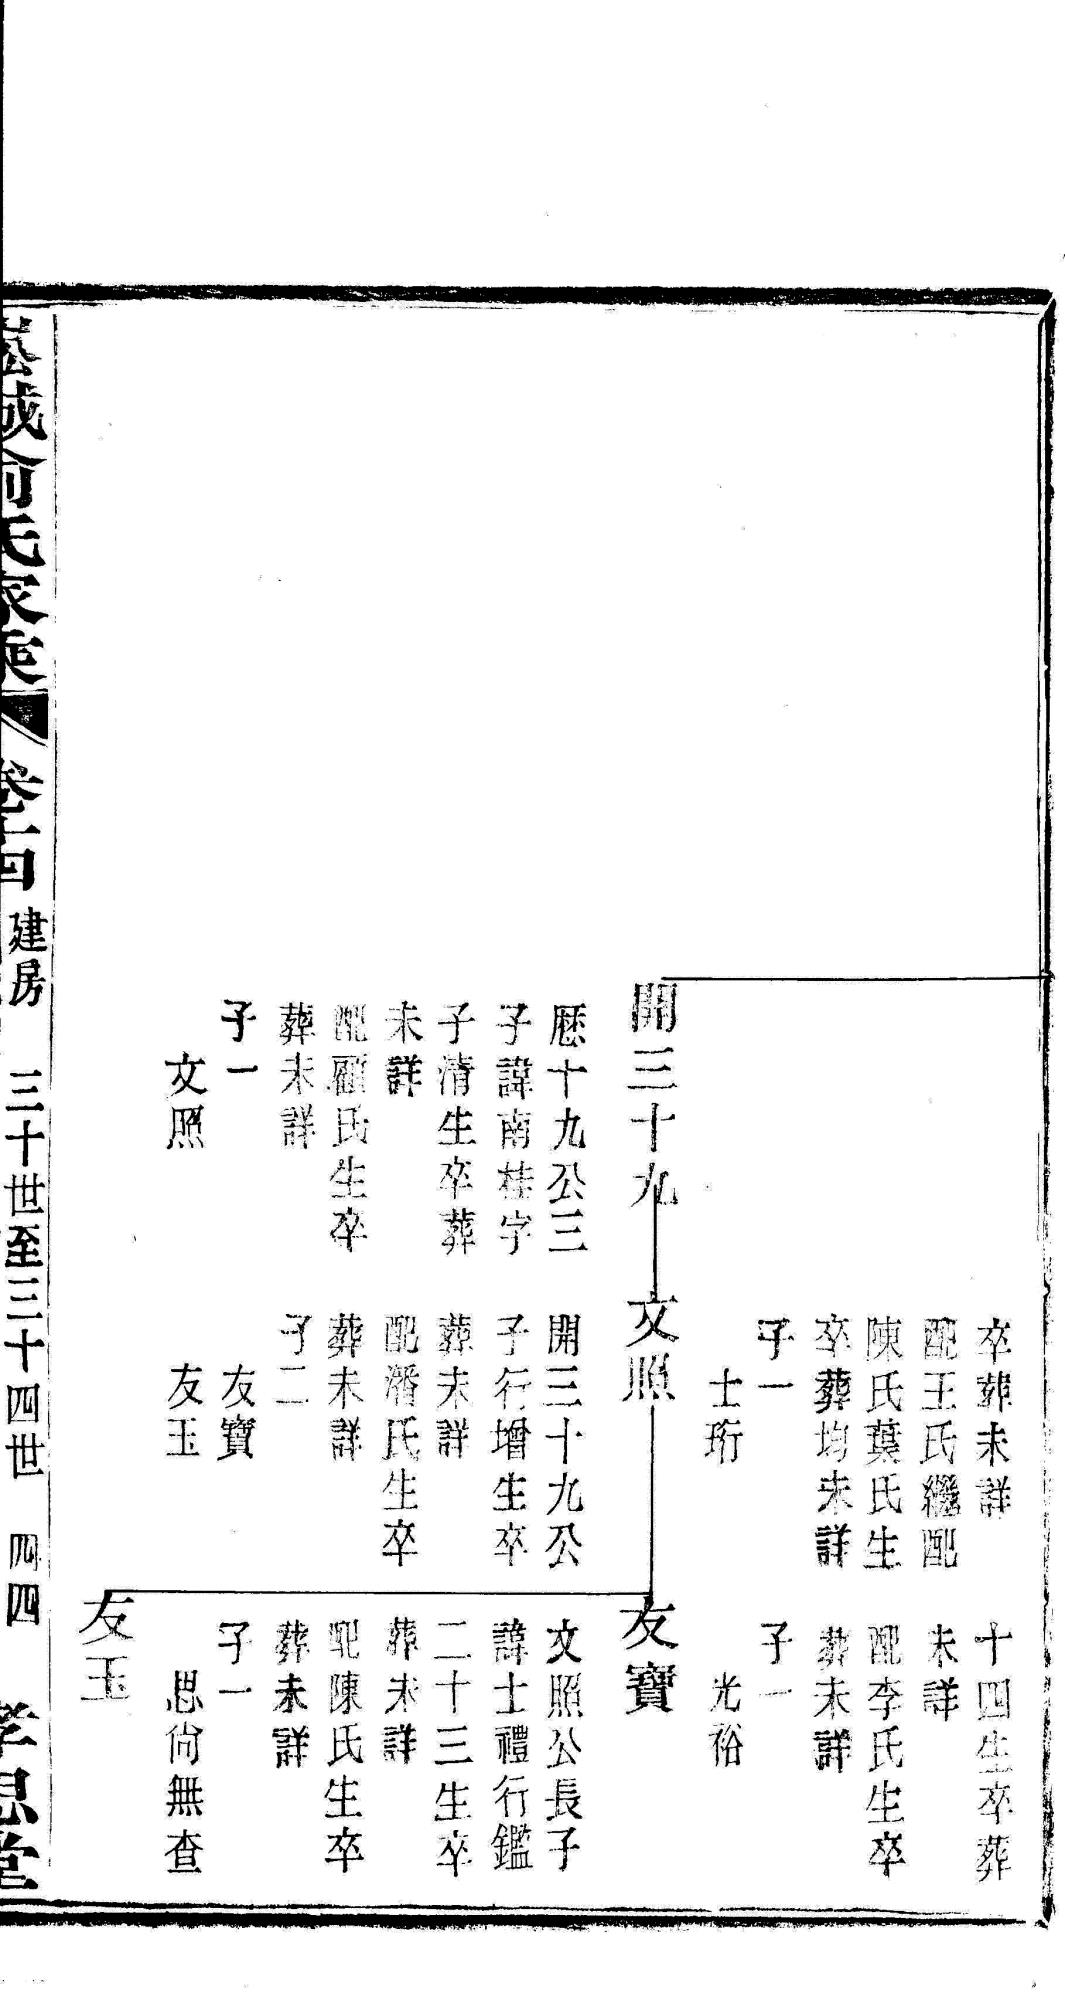 卒葬未詳
配王氏繼配
陳氏葉氏生
卒葬均未詳
子一
士珩
十四生卒葬
未詳
配李氏生卒
葬未詳
子一
光裕
開三十九
歷十九公三
子諱南桂字
子清生卒葬
未詳
配顧氏生卒
葬未詳
子一
文照
文照
開三十九公
子行增生卒
葬未詳
配潘氏生卒
葬未詳
子二
友寶
友玉
友寶
文照公長子
諱士禮行鑑
二十三生卒
葬未詳
配陳氏生卒
葬未詳
子一
思尙無查
友玉
崧城俞氏家乘
卷十四
建房
三十世至三十四世
四四
孝思堂